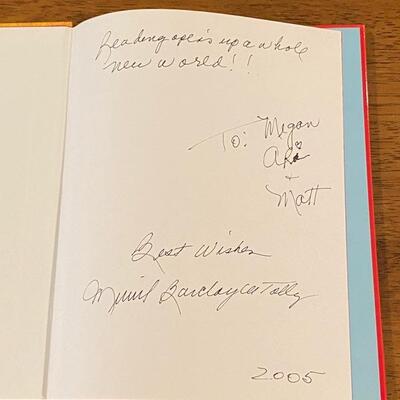 Reading opens up a whole
new world!!
To: Megan
Ari
+
Matt
Best Wishes
Barclay de Tolly
2005